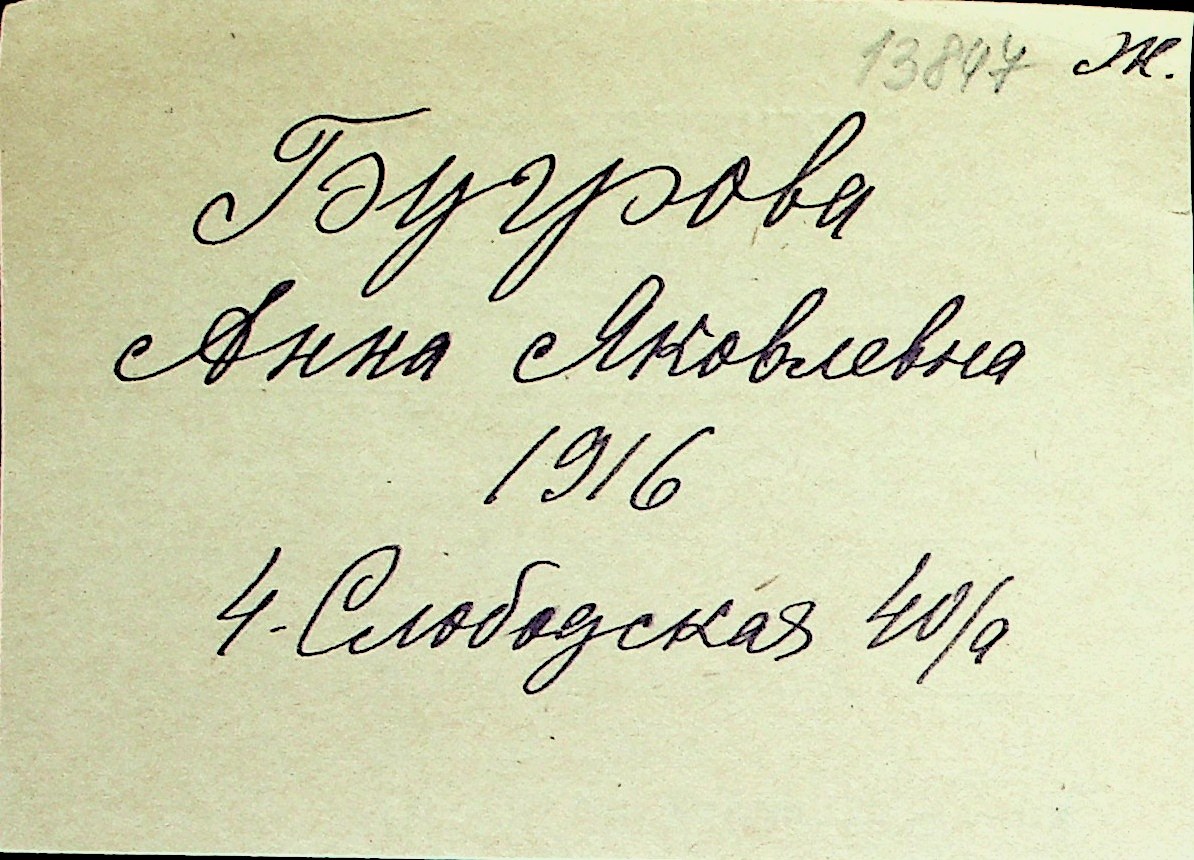 13847 Ж.
Бугрова
Анна Яковлевна
1916
4-Слободская 40/а